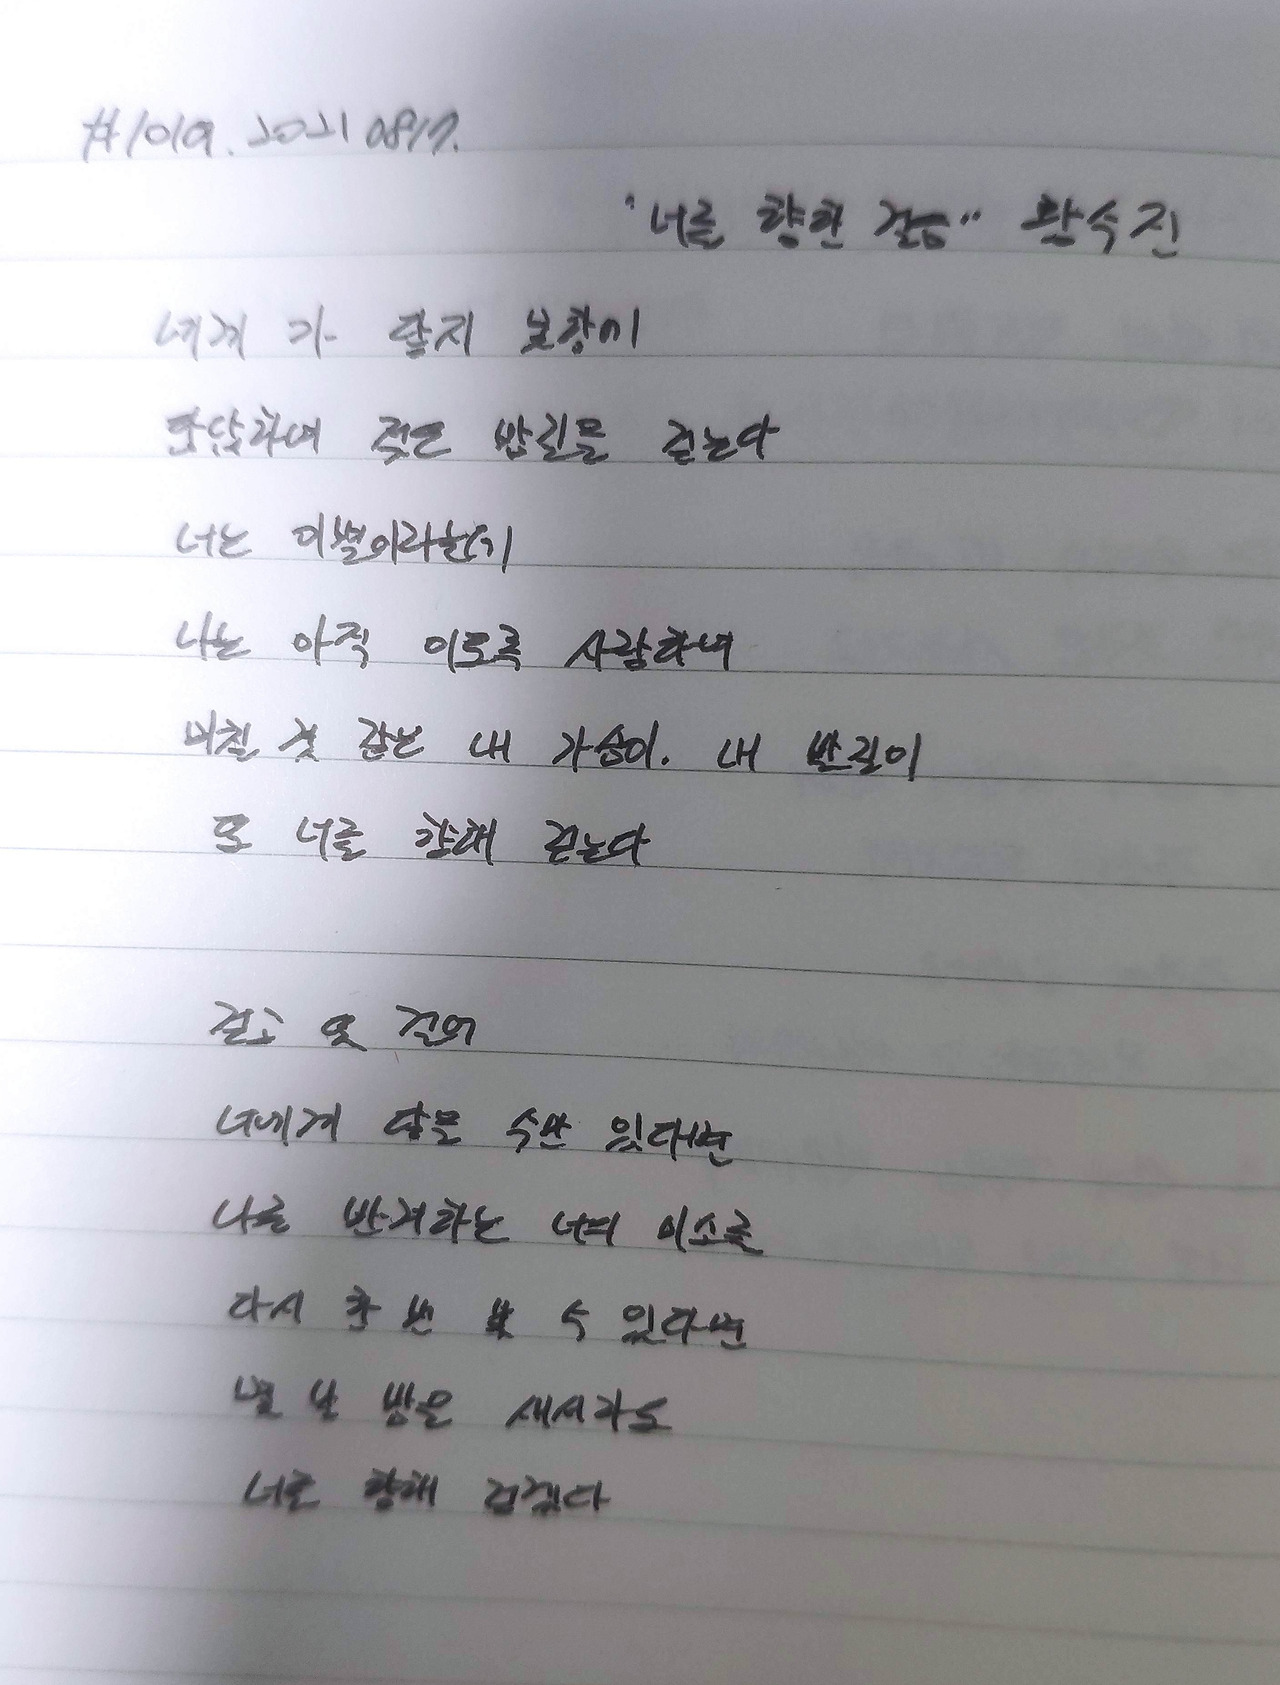 #1019. 2021 0817.
"너를 향한 걸음" 황수진
네게 가 닿지 못함이
답답하여 젖은 밤길을 걷는다
너는 이별이라는데
나는 아직 이토록 사랑하여
미칠 것 같은 내 가슴이. 내 발길이
또 너를 향해 걷는다
걷고 또 걸어
너에게 닿을 수만 있다면
나를 반겨하는 너의 미소를
다시 한 번 볼 수 있다면
몇 날 밤을 새서라도
너를 향해 걷겠다